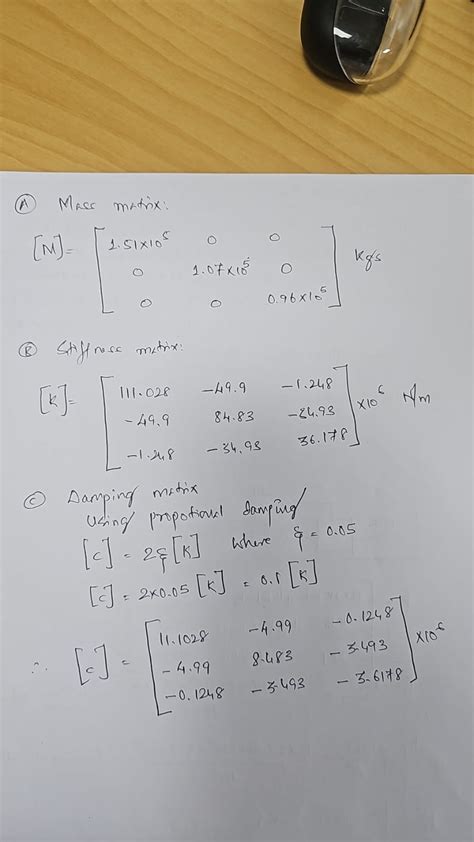 Ⓐ Mass matrix:
[M]= [1.51×10⁵ 0 0
0 1.07×10⁵ 0
0 0 0.96×10⁵] kgs
Ⓑ Stiffness matrix:
[K]= [111.028 -49.9 -1.248
-49.9 84.83 -34.93
-1.248 -34.93 36.178] ×10⁶ N/m
Ⓒ Damping matrix
Using propotional damping
[c] = 2ξ[K] where ξ = 0.05
[c] = 2×0.05 [K] = 0.1 [K]
∴ [c] = [11.1028 -4.99 -0.1248
-4.99 8.483 -3.493
-0.1248 -3.493 -3.6178] ×10⁶